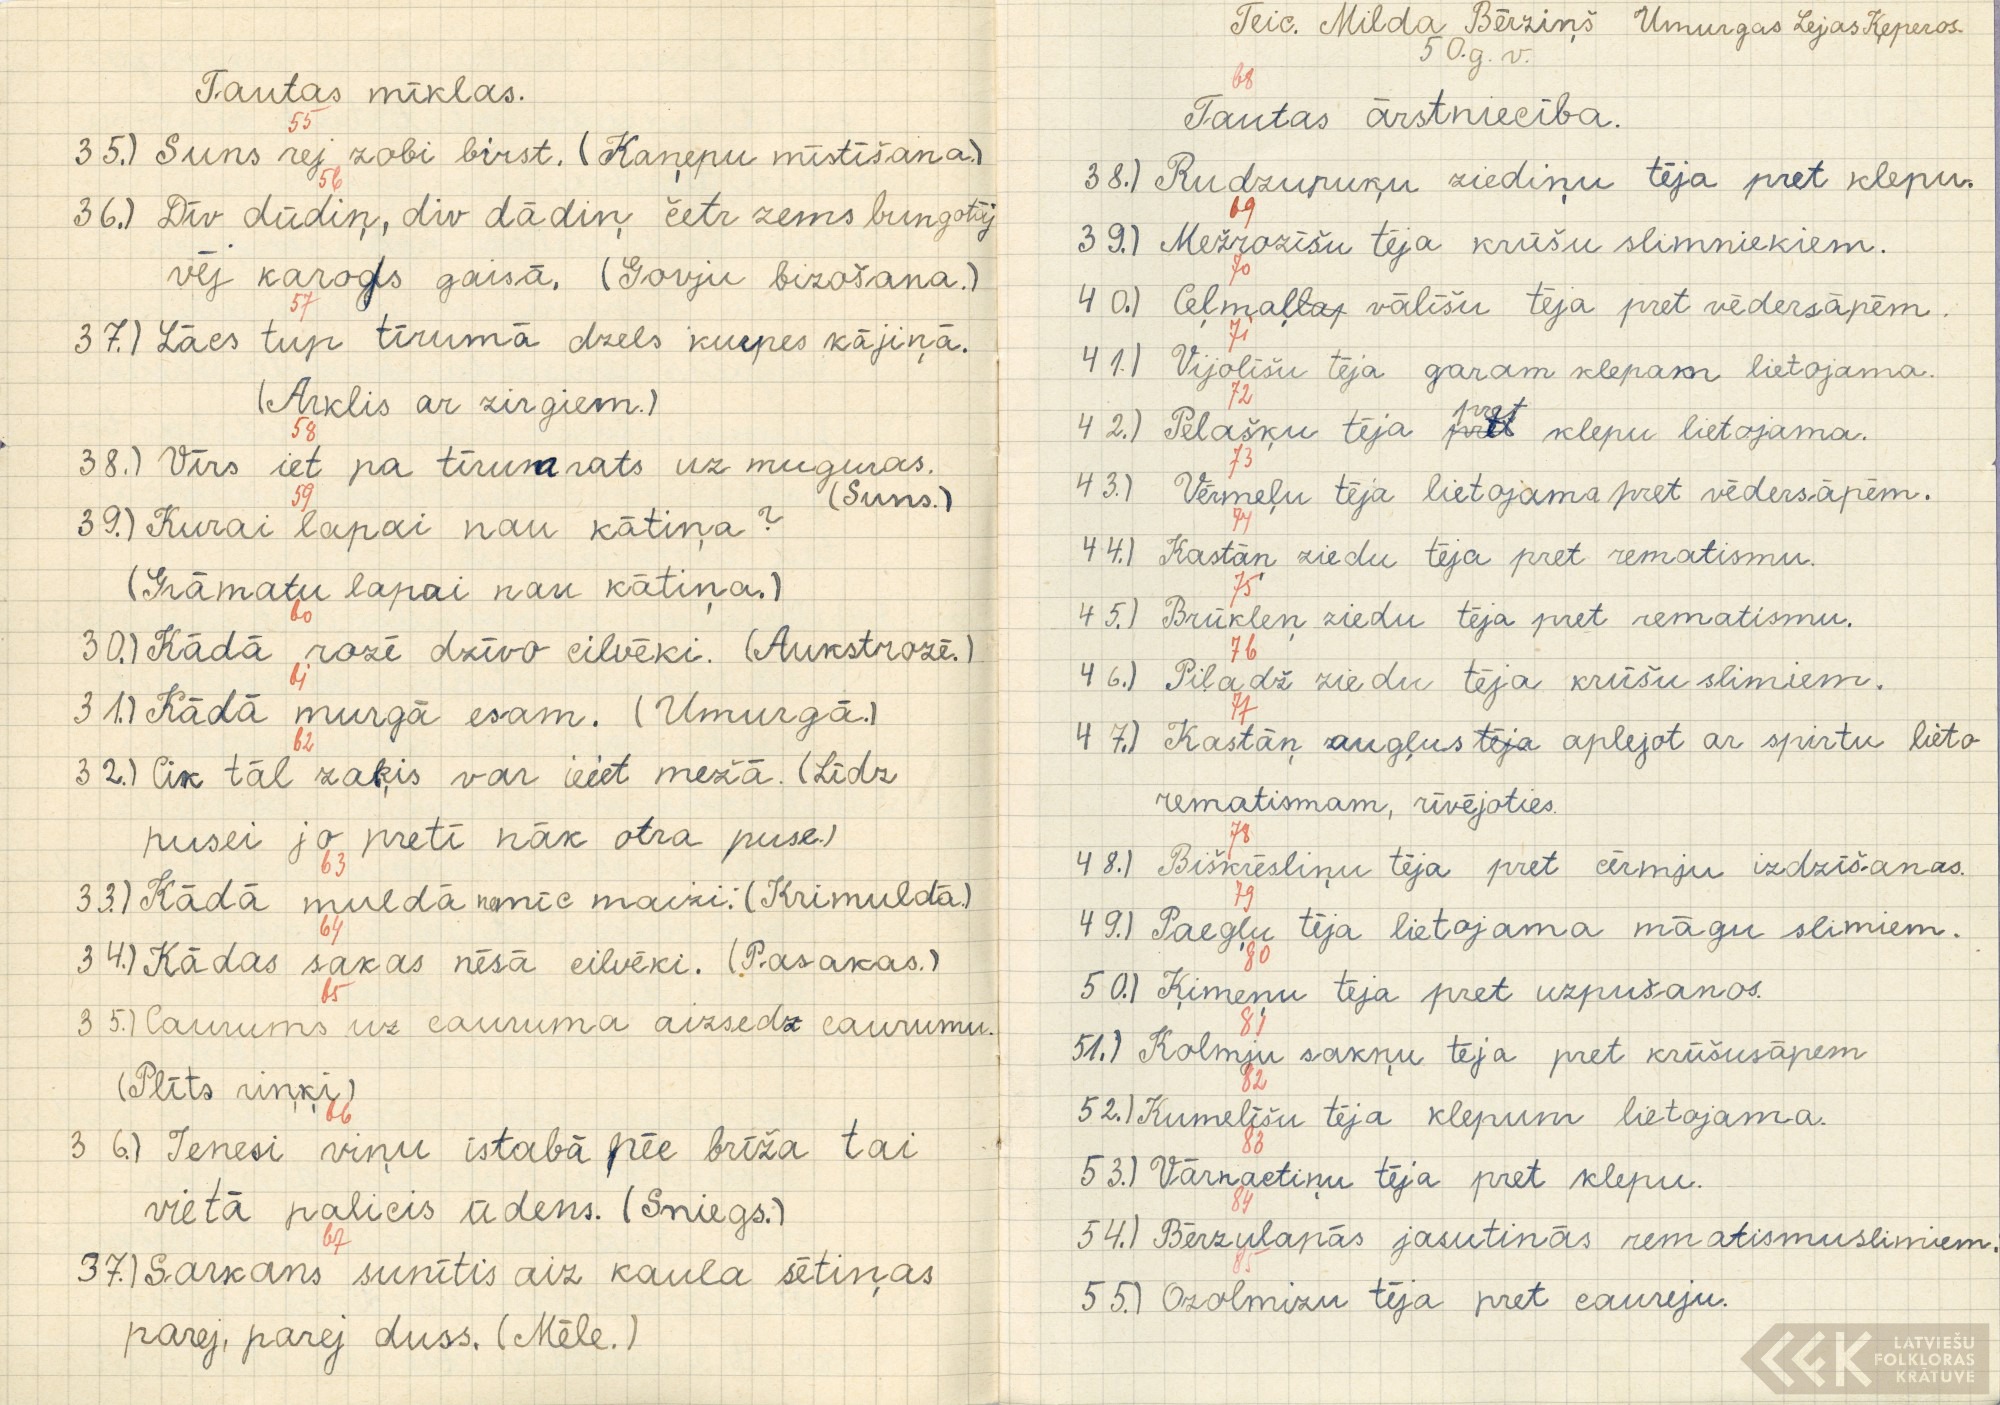 Tautas mīklas.
55
35.) Suns rej zobi birst. (Kaņepu mīstīšana.)
56
36.) Dīv dūdiņ, div dādiņ četr zems bungotāj
vēj karogs gaisā. (Govju bizošana.)
57
37.) Lācs tup tīrumā dzels kurpes kājiņā.
(Arklis ar zirgiem.)
58
38.) Vīrs iet pa tīrum rats uz muguras.
(Suns.)
59
39.) Kurai lapai nau kātiņa?
(Grāmatu lapai nau kātiņa.)
60
30.) Kādā rozē dzīvo cilvēki. (Aukstrozē.)
61
31.) Kādā murgā esam. (Umurgā.)
62
32.) Cik tāl zaķis var ieiet mežā. (Līdz
pusei jo pretī nāk otra puse.)
63
33.) Kādā muldā nemīc maizi: (Krimuldā.)
64
34.) Kādas sakas nēsā cilvēki. (Pasakas.)
65
35.) Caurums uz cauruma aizsedz caurumu.
(Plīts riņķi)
66
36.) Ienesi viņu istabā pēc brīža tai
vietā palicis ūdens. (Sniegs.)
67
37.) Sarkans sunītis aiz kaula sētiņas
parej, parej duss. (Mēle.)
Teic. Milda Bērziņš Umurgas Lejas Ķeperos.
50.g. v.
68
Tautas ārstniecība.
38.) Rudzupuķu ziediņu tēja pret klepu.
69
39.) Mežrozīšu tēja krūšu slimniekiem.
70
40.) Ceļmaļlap vālīšu tēja pret vēdersāpēm.
71
41.) Vijolīšu tēja garam klepam lietojama.
72
pret
42.) Pelašķu tēja pret klepu lietojama.
73
43.) Vērmeļu tēja lietojama pret vēdersāpēm.
74
44.) Kastāņ ziedu tēja pret rematismu.
75
45.) Brūkleņ ziedu tēja pret rematismu.
76
46.) Pīladž ziedu tēja krūšu slimiem.
77
47.) Kastāņ augļus tēja aplejot ar spirtu lieto
rematismam, rīvējoties.
78
48.) Biškrēsliņu tēja pret cērmju izdzīšanas.
79
49.) Paegļu tēja lietojama māgu slimiem.
80
50.) Ķimeņu tēja pret uzpušanos.
81
51.) Kolmju sakņu tēja pret krūšusāpem
82
52.) Kumelīšu tēja klepum lietojama.
83
53.) Vārnactiņu tēja pret klepu.
84
54.) Bērzulapās jasutinās rematismuslimiem.
85
55.) Ozolmizu tēja pret caureju.
LATVIEŠU
FOLKLORAS
KRĀTUVE